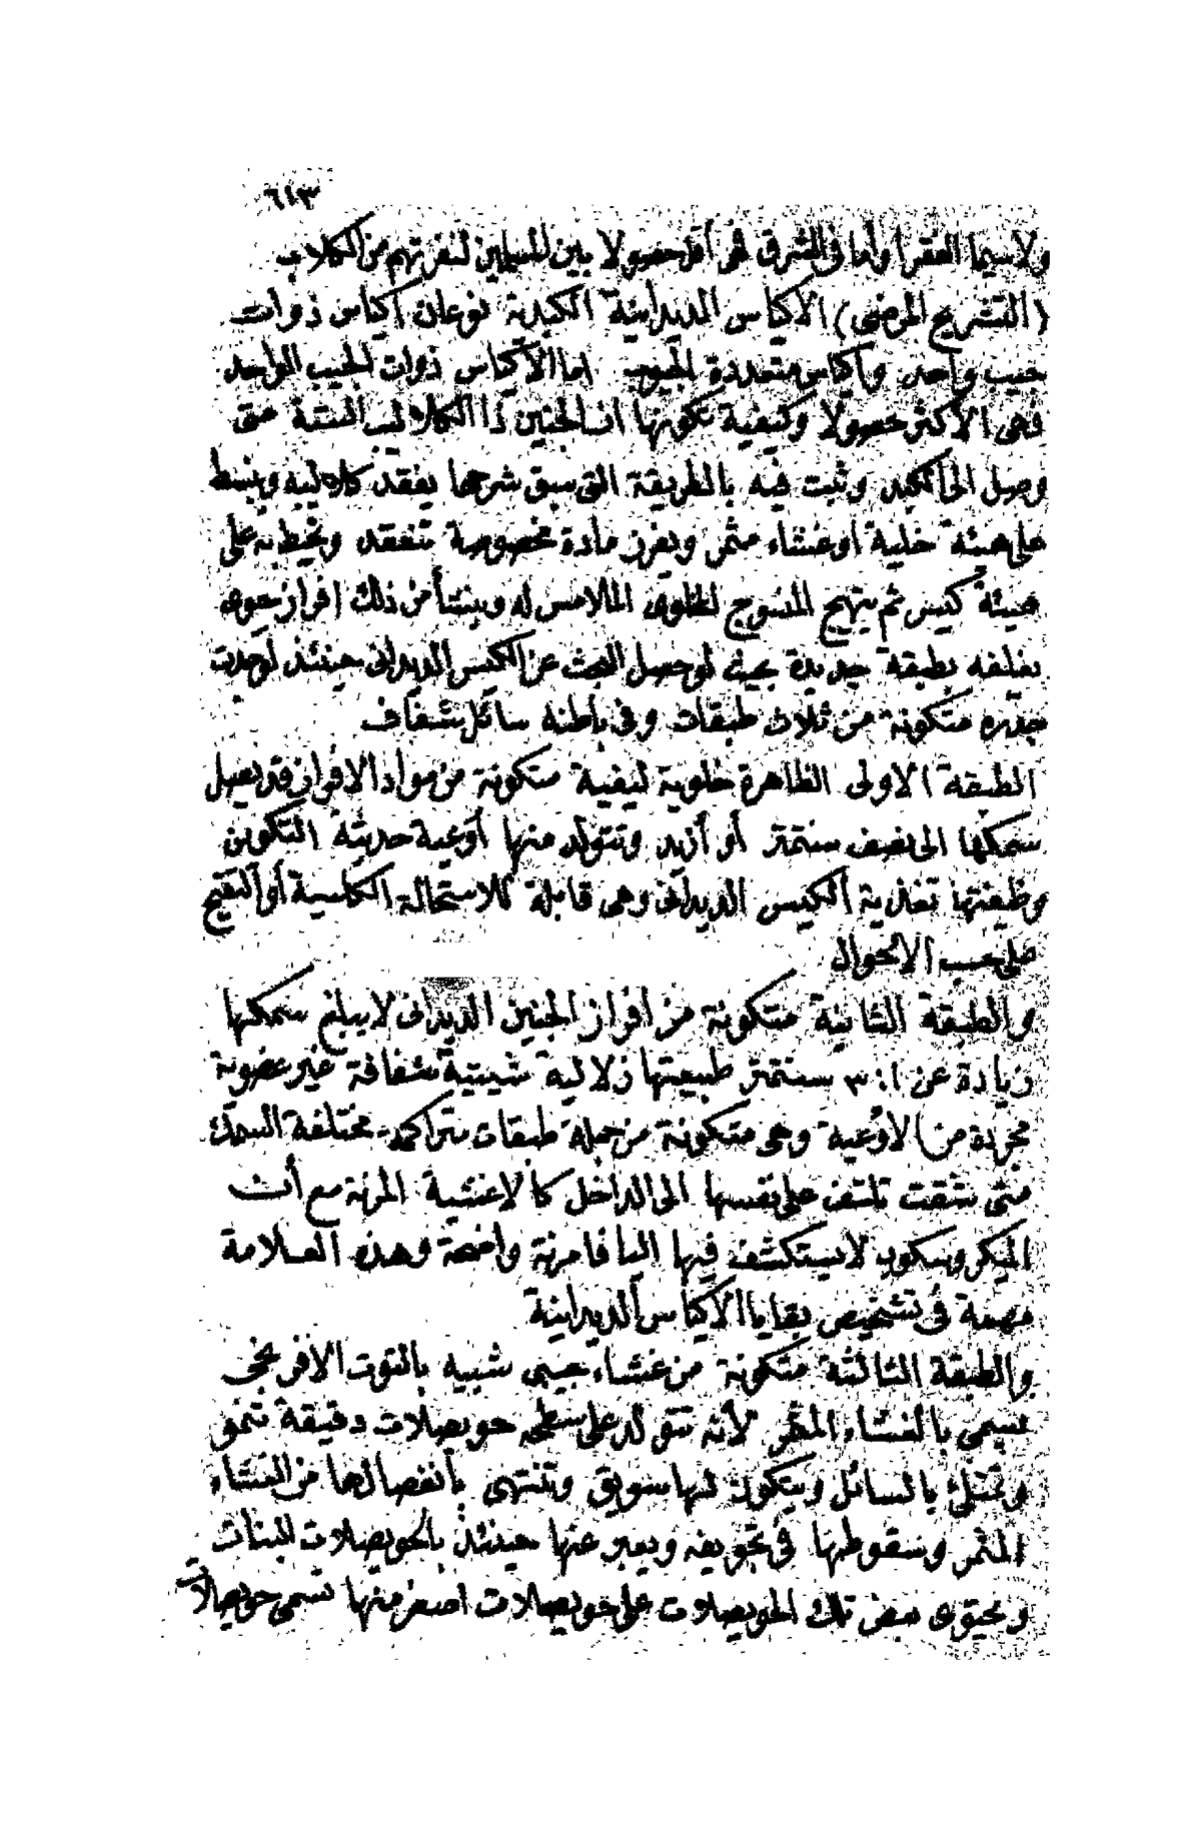 ٦١٣
ولاسيما الفقرا وأما فى الشرق فهى أقل حصولا بين المسلمين لنفرتهم من الكلاب
(التشريح المرضى) الاكياس الديدانية الكبدية نوعان أكياس ذوات
جيب واحد وأكياس متعددة الجيوب اما الأكياس ذوات الجيب الواحد
فهى الأكثر حصولا وكيفية تكونها ان الجنين ذا الكلاليب الستة متى
وصل الى الكبد وثبت فيه بالطريقة التى سبق شرحها يفقد كلاليبه وينبسط
على هيئة خلية أوغشاء مثمر ويفرز مادة مخصوصة تنعقد وتحيط به على
هيئة كيس ثم يتهيج المنسوج الخلوى الملامس له وينشأ من ذلك افراز
يغلفه بطبقة جديدة بحيث لوحصل البحث عن الكيس الديدانى حينئذ لوجدت
جدره متكونة من ثلاث طبقات وفى باطنه سائل شفاف
الطبقة الاولى الظاهرة خلوية ليفية متكونة من مواد الافراز وقد يصل
سمكها الى نصف سنتمتر أو أزيد وتتولد منها أوعية حديثة التكوين
وظيفتها تغذية الكيس الديدانى وهى قابلة للاستحالة الكلسية أو التقيح
على حسب الاحوال
والطبقة الثانية متكونة من افراز الجنين الديدانى لا يبلغ سمكها
زيادة عن ٣ سنتمتر طبيعتها زلالية شيتية شفافة غير عضوية
مجردة من الاوعية وهى متكونة من جملة طبقات متراكمة مختلفة السمك
متى شقت تلتف على نفسها الى الداخل كالاغشية المرنة مع أن
الميكروسكوب لا يستكشف فيها اليافا مرنة واضحة وهذه العلامة
مهمة فى تشخيص بقايا الأكياس الديدانية
والطبقة الثالثة متكونة من غشاء حبيبى شبيه بالتوت الافرنجى
يسمى بالغشاء المثمر لأنه تتولد على سطحه حويصلات دقيقة تنمو
وتمتلئ بالسائل ويتكون لها سويق وتنتهى بانفصالها من الغشاء
المثمر وسقوطها فى تجويفه ويعبر عنها حينئذ بالحويصلات البنات
ويحتوى بعض تلك الحويصلات على حويصلات اصغر منها تسمى حويصلات